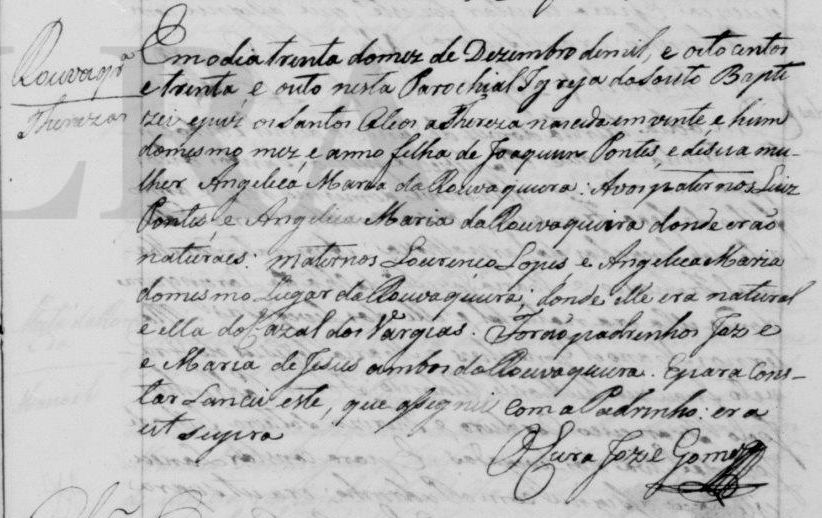 Rouvaqrª
Thereza
Em o dia trinta do mez de Dezembro de mil, e oito centos
e trenta e outo nesta Parochial Igreja do Souto Bapti
zei e puz os Santos Oleos a Thereza nascida em vinte e hum
do mesmo mez, e anno filha de Joaquim Pontes, e de sua mu-
lher Angelica Maria da Rouvaqueira: Avos paternos Luiz
Pontes, e Angelica Maria da Rouvaqueira donde erão
naturaes: maternos Lourenco Lopes e Angelica Maria
do mesmo Lugar da Rouvaqueira; donde elle era natural
e ella do Cazal dos Vargias. Forão padrinhos Joze
e Maria de Jesus ambos da Rouvaqueira. E para cons-
tar Lancei este, que assignei com a Padrinho: era
ut supra
O Cura Joze Gomes